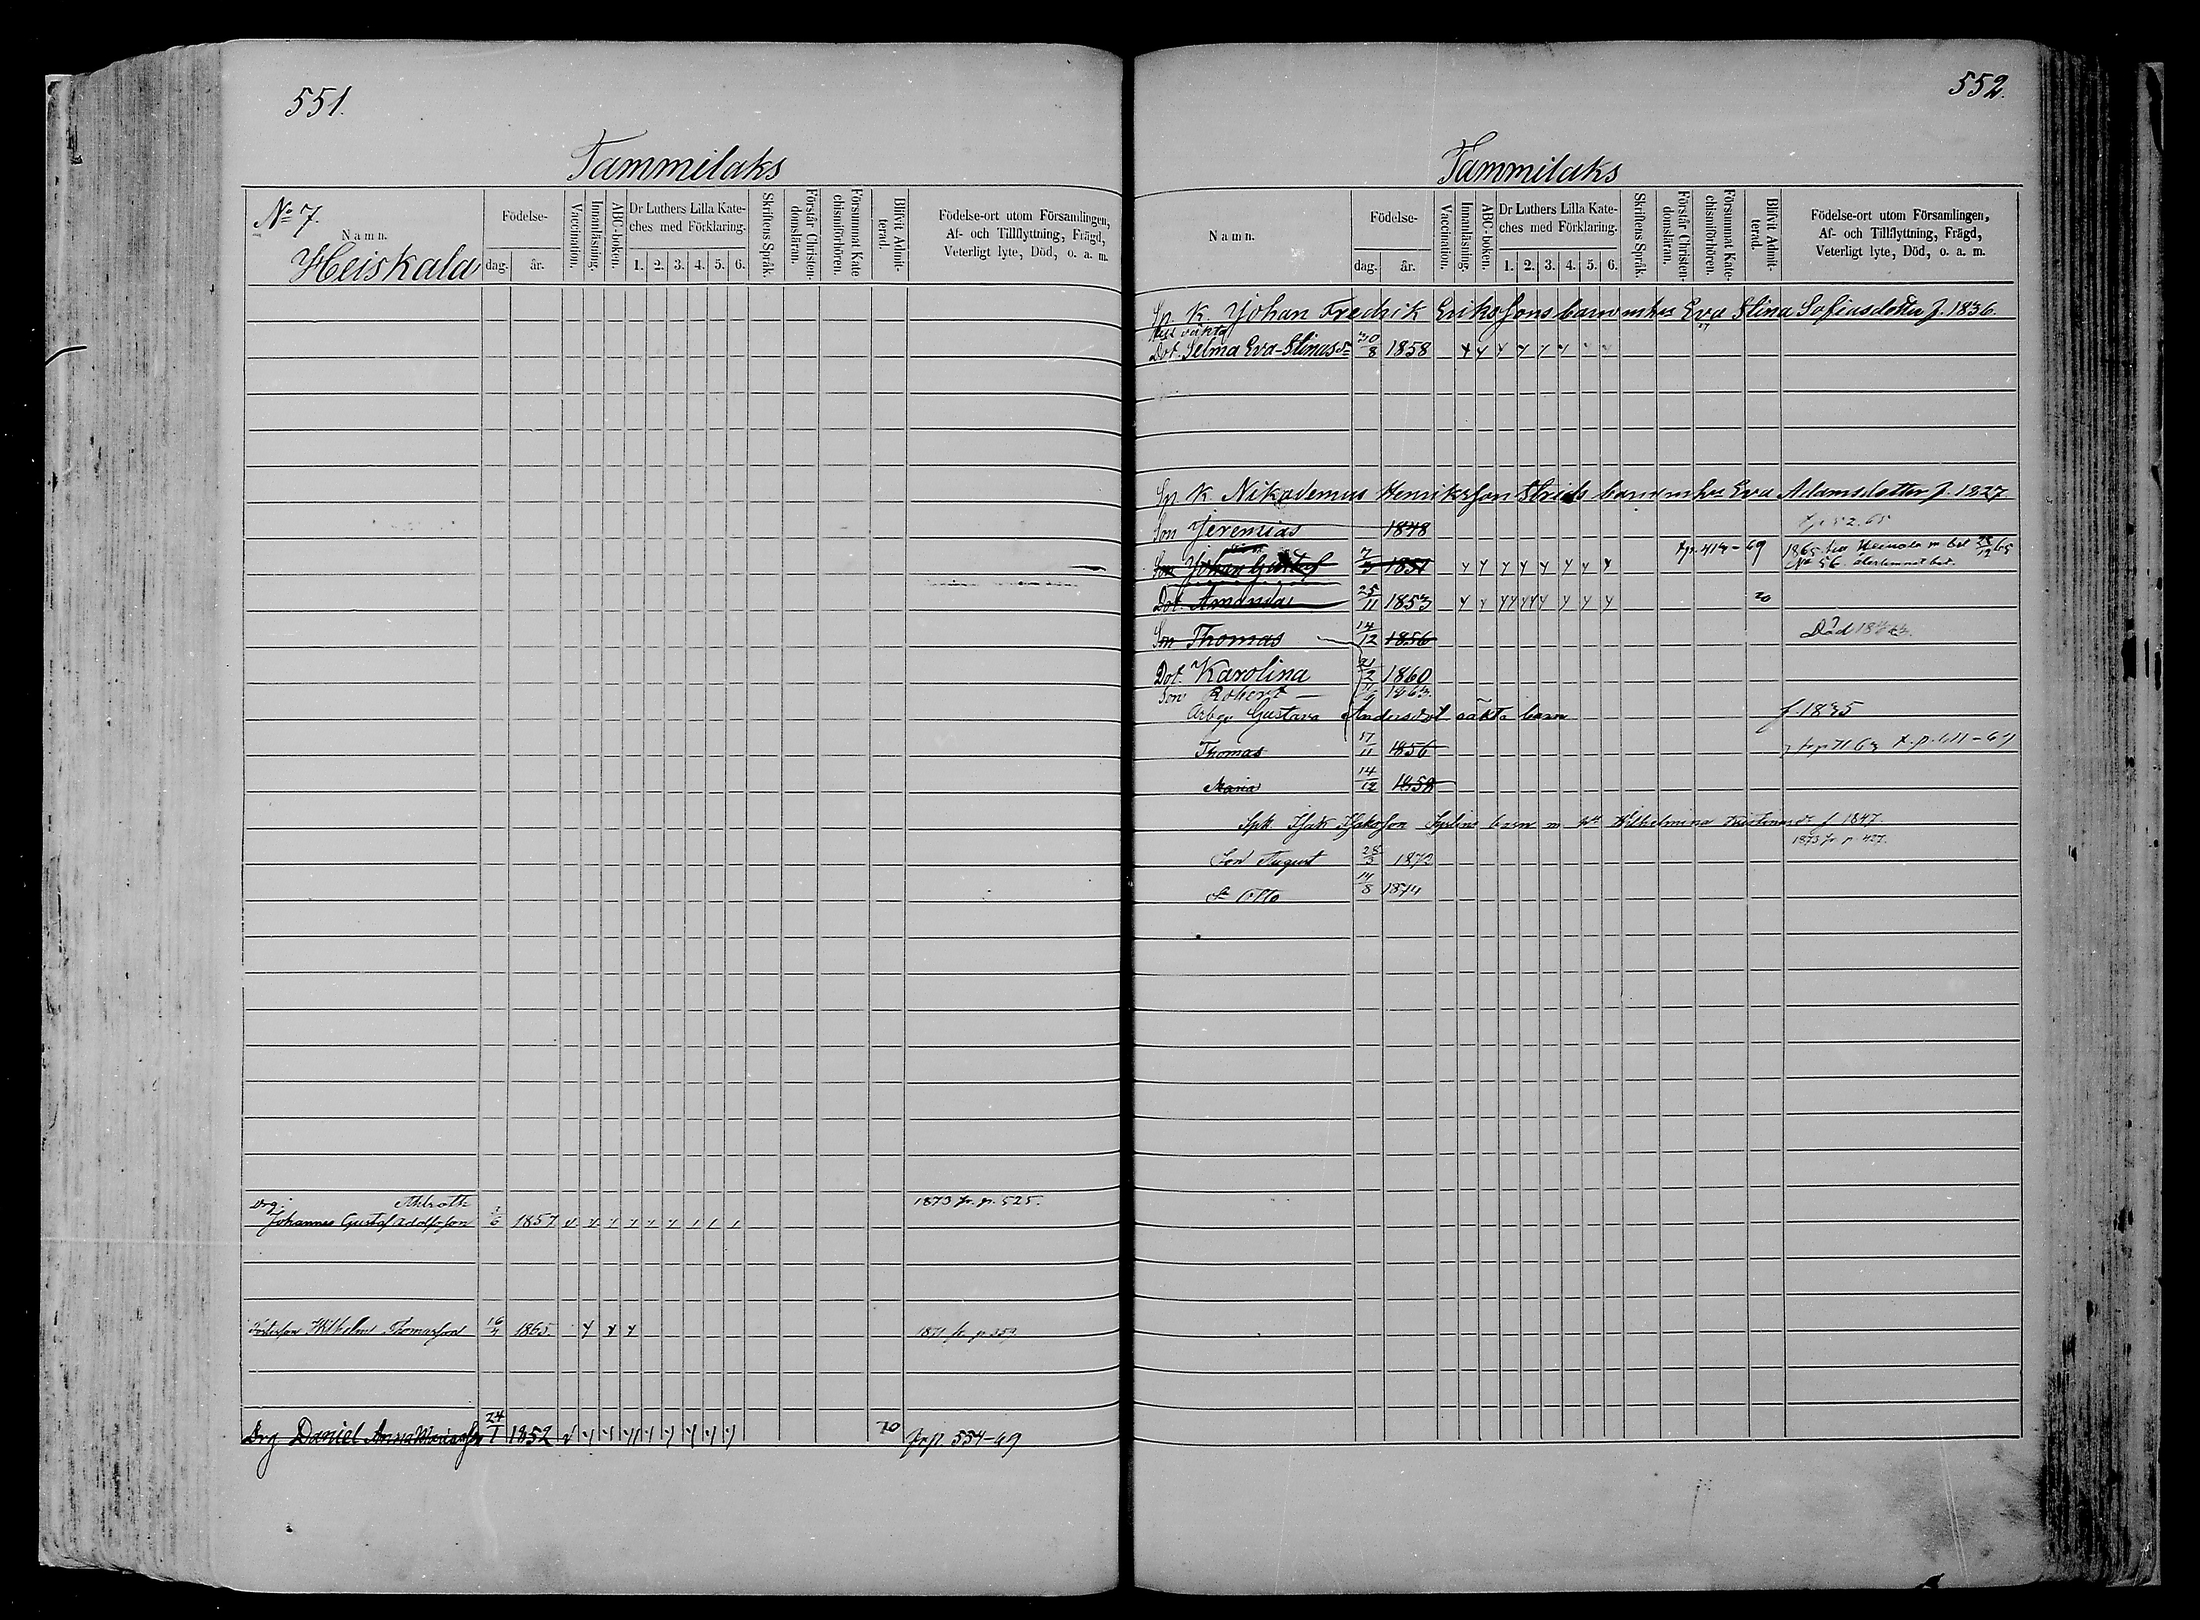 551.
Tammilaks
No 7.
Namn.
Heiskala
Födelse-
dag. år.
Vaccination.
Innanläsning.
ABC-boken.
Dr Luthers Lilla Kate-
ches med Förklaring.
1. 2. 3. 4. 5. 6.
Skriftens Språk.
Förstår Christen-
domsläran.
Försummat Kate
chismiförhören.
Blifvit Admit-
terad.
Födelse-ort utom Församlingen,
Af- och Tillflyttning, Frägd,
Veterligt lyte, Död, o. a. m.
Drg. Ahlroth 1873 fr. p. 525.
Johannes Gustaf Adolfsson 1/6 1857
Wilhelm Thomasson 16/4 1865. 1871 fr p 359
Drg Daniel Anna Mariasson 24/1 1852 70 frp. 554-69
552.
Tammilaks
Namn.
Födelse-
dag. år.
Vaccination.
Innanläsning.
ABC-boken.
Dr Luthers Lilla Kate-
ches med Förklaring.
1. 2. 3. 4. 5. 6.
Skriftens Språk.
Förstår Christen-
domsläran.
Försummat Kate-
chismiförhören.
Blifvit Admit-
terad.
Födelse-ort utom Församlingen,
Af- och Tillflyttning, Frägd,
Veterligt lyte, Död, o. a. m.
Sp. K. Johan Fredrik Erikssons barn m hu Eva Stina Sofiasdotter f. 1836.
oäkta
Dot. Selma Eva-Stinasdr 30/8 1858
Sp. K. Nikodemus Henriksson Strids barn m hu Eva Adamsdotter f. 1827
Son Jeremias 1848
Son Johan Gustaf 7/3 1851 tp. 414-69 1865 fr Heinola m bet 65
No 56.
Dot. Amanda 25/11 1853 70
Son Thomas 14/12 1856 Död
Dot. Karolina 21/2 1860
Son Robert 1863
Arbg. Gustava Andersdot oäkta barn f. 1835
Thomas 17/11 1856
Maria 14/12 1858
Spk. Isak Isaksson barn m h Wilhelmina f 1847.
1873 fr p. 427.
Son August 28/3 1872
Sn Otto 14/8 1874